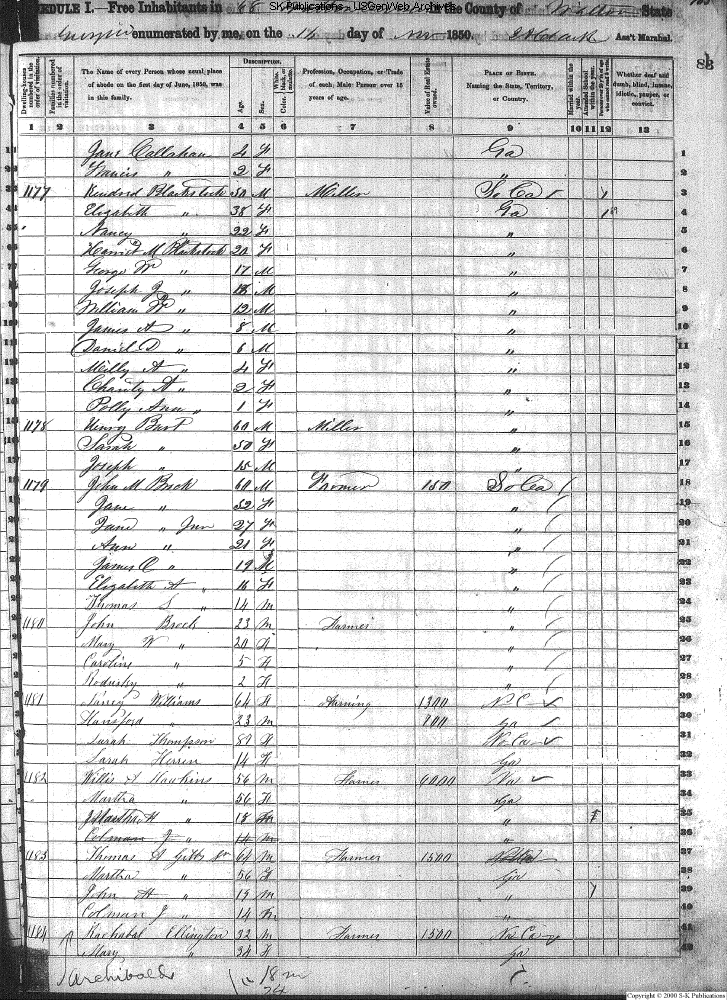 SK Publications - USGenWeb Archives
EDULE I.—Free Inhabitants in 66 in the County of Walton State
Georgia enumerated by me, on the 14 day of Nov 1850. Ass't Marshal.
88
Dwelling-houses numbered in the order of visitation.
Families numbered in the order of visitation.
The Name of every Person whose usual place of abode on the first day of June, 1850, was in this family.
DESCRIPTION.
Age.
Sex.
Color, White, black, or mulatto.
Profession, Occupation, or Trade of each Male Person over 15 years of age.
Value of Real Estate owned.
PLACE OF BIRTH. Naming the State, Territory, or Country.
Married within the year.
Attended School within the year.
Whether deaf and dumb, blind, insane, idiotic, pauper, or convict.
1 2 3 4 5 6 7 8 9 10 11 12 13
Jane Callahan 4 F Ga 1
Francis " 2 F " 2
1177 Blackstock 50 M Miller So Ca 1 3
Elizabeth " 38 F Ga 1 4
Nancy " 22 F " 5
Harriet M Blackstock 20 F " 6
George W " 17 M " 7
Joseph " M " 8
William W " 12 M " 9
James A " 8 M " 10
Daniel D " 6 M " 11
Milly A " 4 F " 12
Charity A " 2 F " 13
Polly Ann " 1 F " 14
1178 Henry Burt 60 M Miller " 15
Sarah " 50 F " 16
Joseph " 15 M " 17
1179 John M Brock 60 M Farmer 150 So Ca 18
Jane " 52 F " 19
Jane " Jun 27 F " 20
Ann " 21 F " 21
James " 19 M " 22
Elizabeth A " 16 F " 23
Thomas S " 14 M " 24
1180 John Brock 23 M Farmer " 25
Mary W " 20 F " 26
Caroline " 5 F " 27
" 2 F " 28
1181 Nancy Williams 64 F Farming 1300 N C 29
Hansford " 23 M Ga 30
Sarah Thompson F No Ca 31
Sarah Herren 14 F Ga 32
1182 Willis Hawkins 56 M Farmer 6000 Va 33
Martha " 56 F Ga 34
Martha H " 18 " 35
Colman J " 14 M "
1183 Thomas Gibbs 64 M Farmer 1500
Martha " 56 F Ga
John H " M "
Colman J " 14 M "
1184 Ellington 32 M Farmer 1500 No Ca
Mary " 34 F Ga
Archibald
18 m
Copyright © 2000 S-K Publications